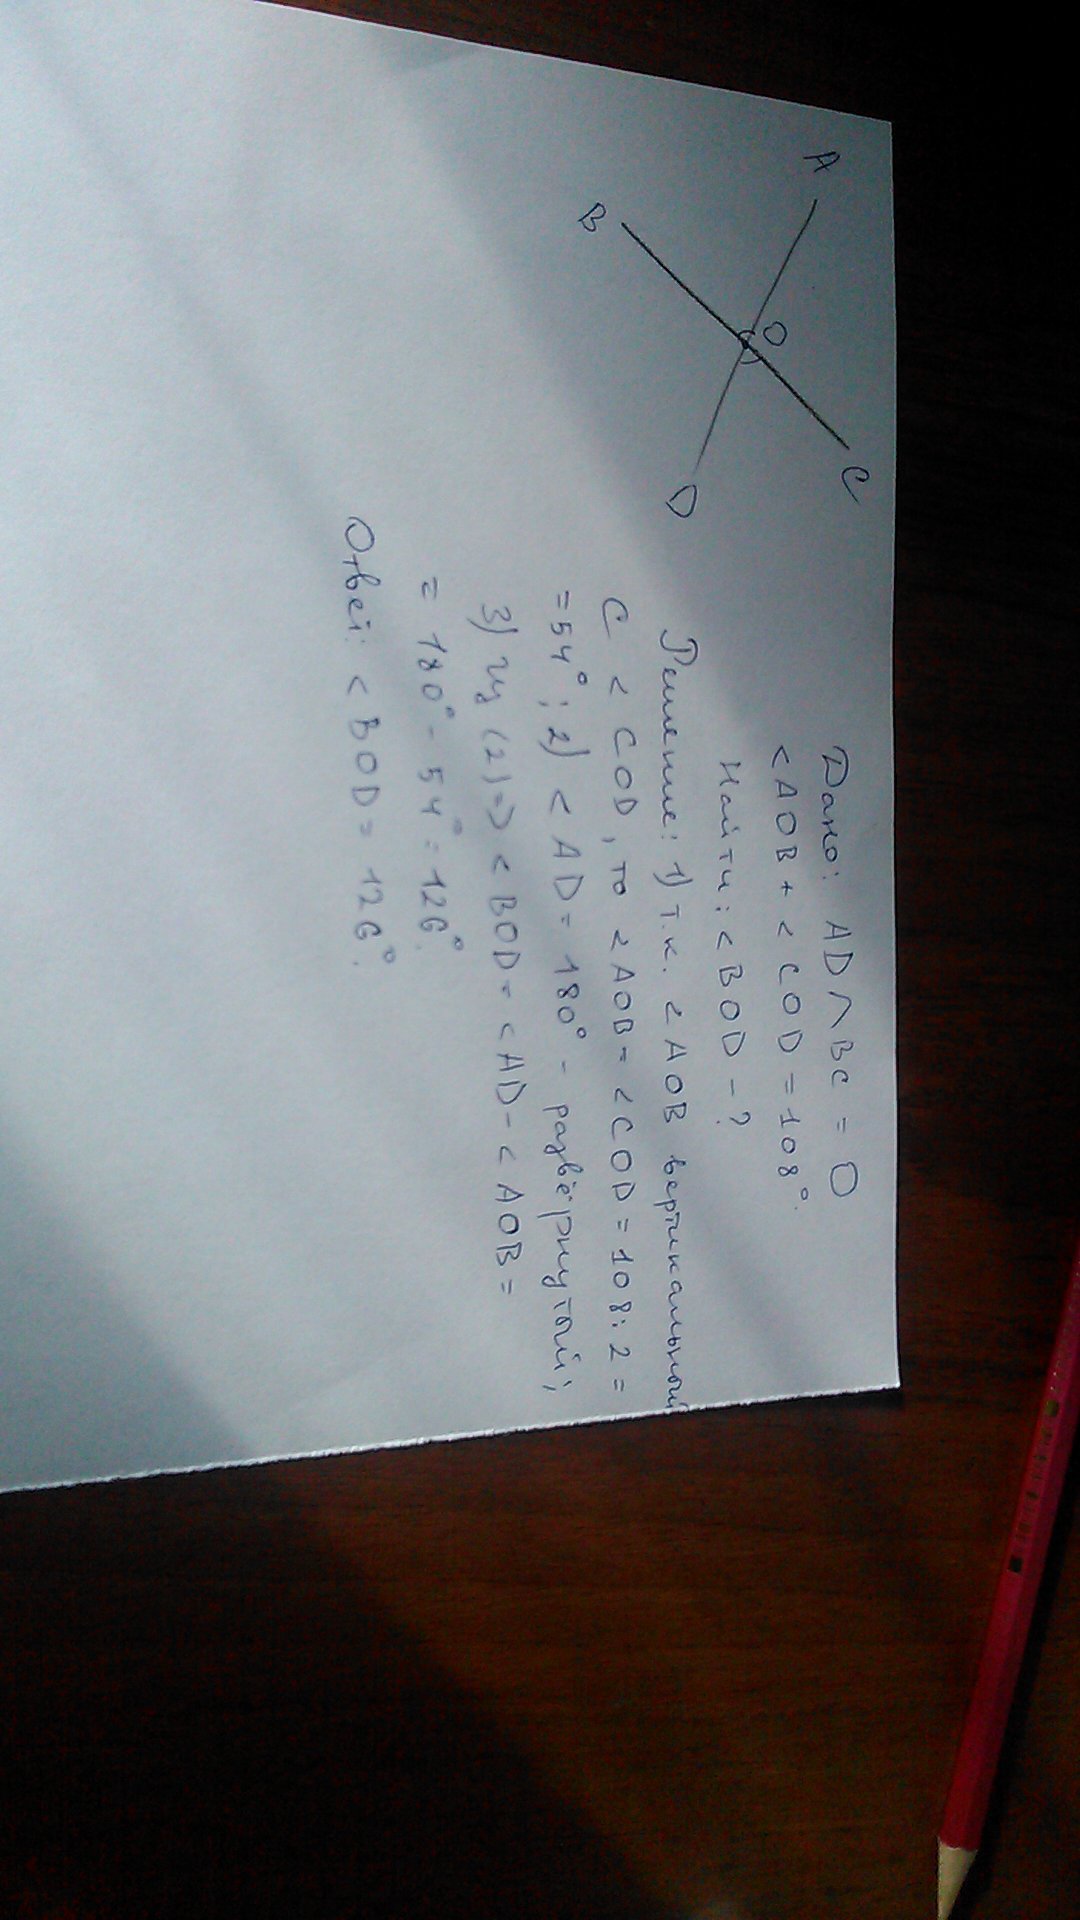 A
B
O
C
D
Дано: AD ∩ BC = O
< AOB + < COD = 108°.
Найти: < BOD - ?
Решение: 1) т.к. < AOB вертикальный
С < COD, то < AOB = < COD = 108 : 2 =
= 54°; 2) < AD = 180° - развёрнутый;
3) Из (2) => < BOD = < AD - < AOB =
= 180° - 54° = 126°.
Ответ: < BOD = 126°.